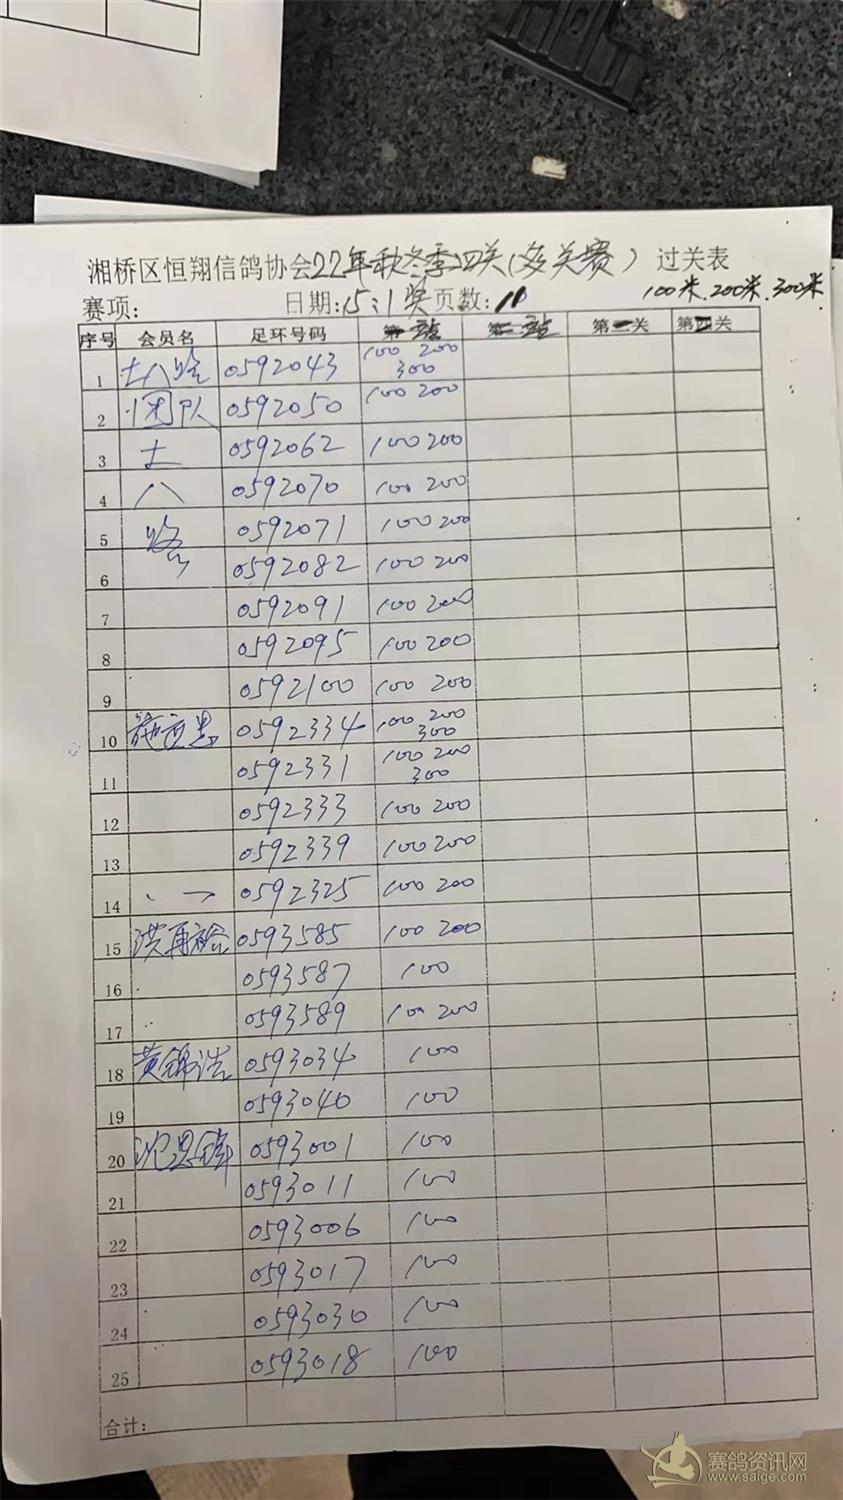 湘桥区恒翔信鸽协会22年秋冬季四关(多关赛)过关表
赛项: 日期:15:1奖页数:11 100米.200米.300米
序号 会员名 足环号码 第一站 第二站 第三关 第四关
1 十八路 0592043 100 200 300
2 团队 0592050 100 200
3 士 0592062 100 200
4 八 0592070 100 200
5 路 0592071 100 200
6 0592082 100 200
7 0592091 100 200
8 0592095 100 200
9 0592100 100 200
10 0592334 100 200 300
11 0592331 100 200 300
12 0592333 100 200
13 0592339 100 200
14 0592325 100 200
15 洪再裕 0593585 100 200
16 0593587 100
17 0593589 100 200
18 黄锦浩 0593034 100
19 0593040 100
20 沈思锋 0593001 100
21 0593011 100
22 0593006 100
23 0593017 100
24 0593030 100
25 0593018 100
合计:
赛鸽资讯网
www.saige.com